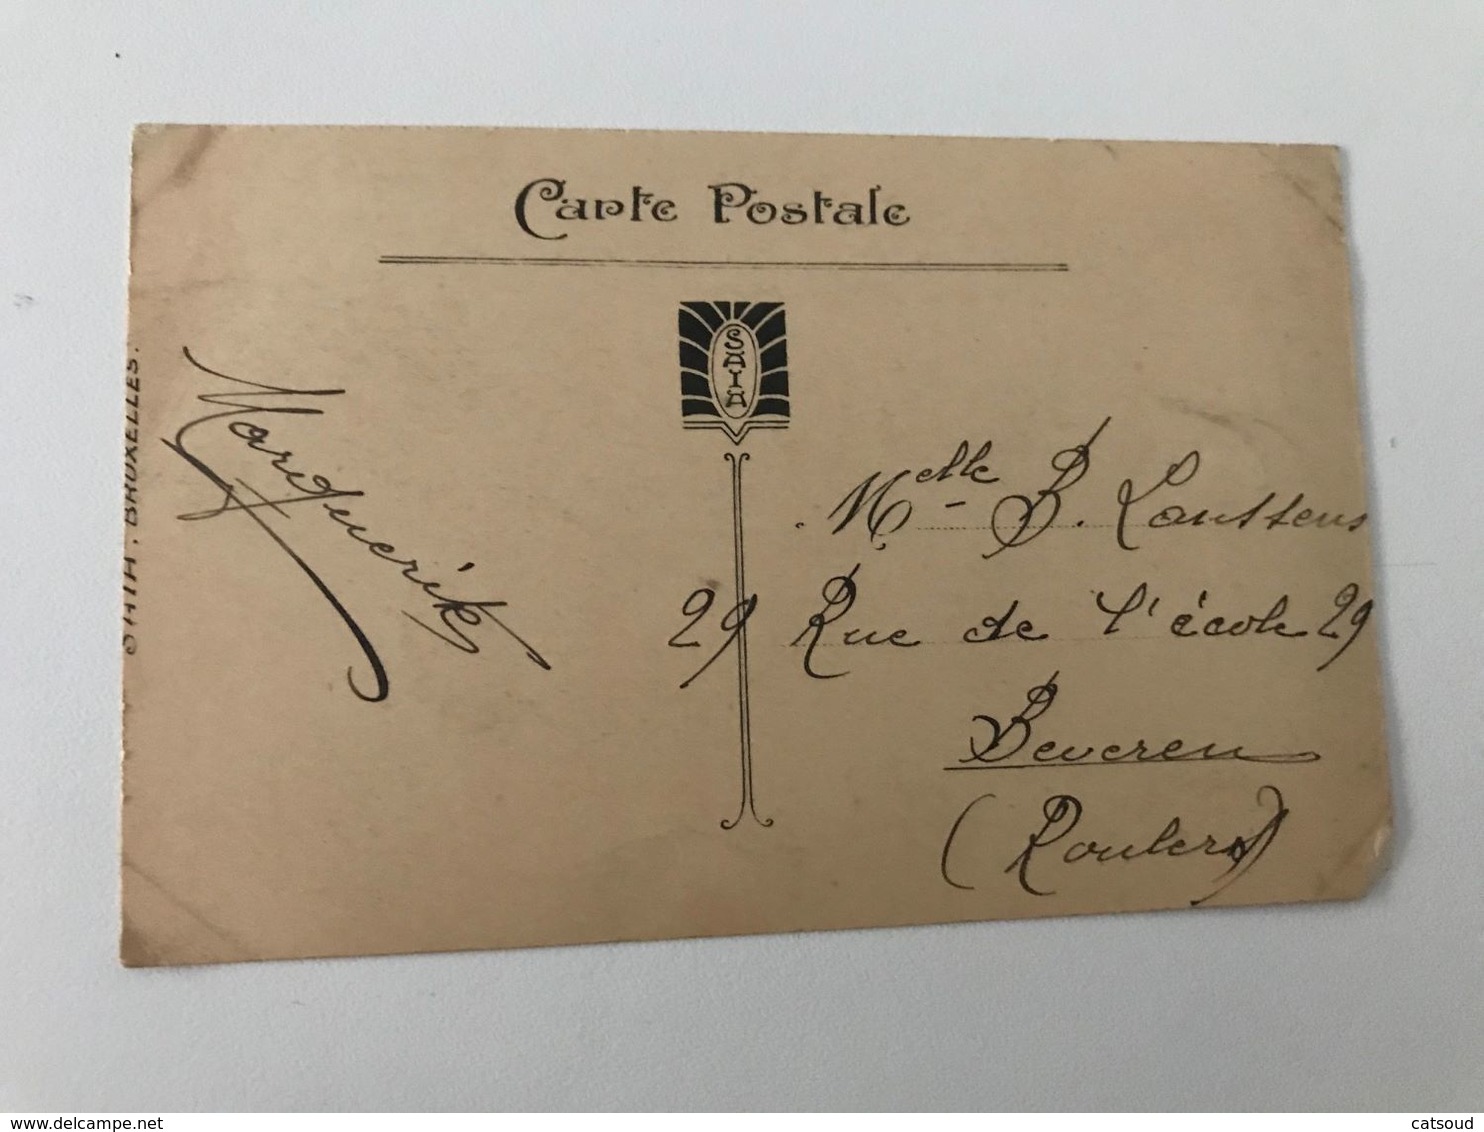 Carte Postale
SAIA
SAIA. BRUXELLES.
Marguerite
Melle B. Lanssens
29 Rue de l'école 29
Beveren
(Roulers)
delcampe.net
catsoud